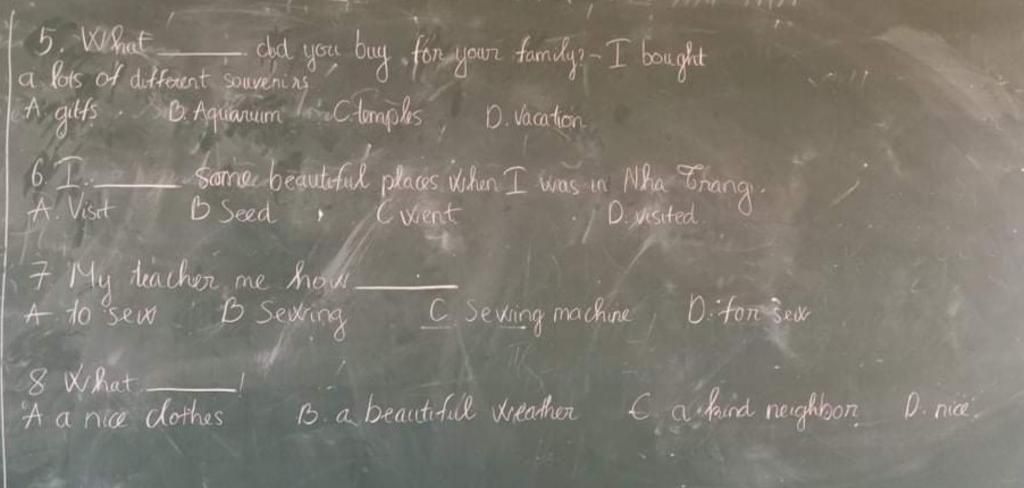 5. What ______ did you buy for your family? - I bought
a lots of different souvenirs
A. gifts B. Aquarium C temples D. vacation
6. I ______ Some beautiful places when I was in Nha Trang.
A. Visit B Seed C went D. visited
7 My teacher me how ______
A to sew B Sewing C Sewing machine D. for sew
8 What ______!
A a nice clothes B. a beautiful weather C. a kind neighbor D. nice